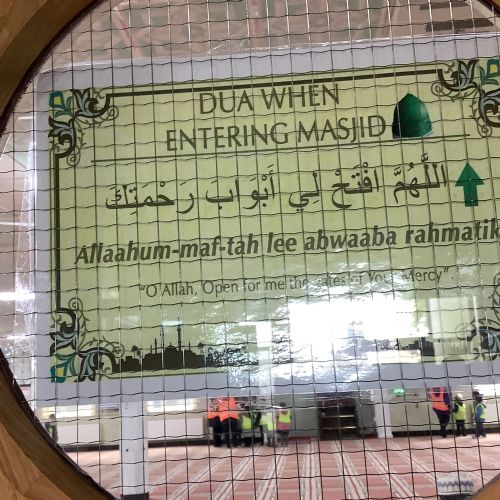 DUA WHEN
ENTERING MASJID
اللَّهُمَّ افْتَحْ لِي أَبْوَابَ رَحْمَتِكَ
Allaahum-maf-tah lee abwaaba rahmatik
"O Allah, Open for me the gates of Your Mercy".